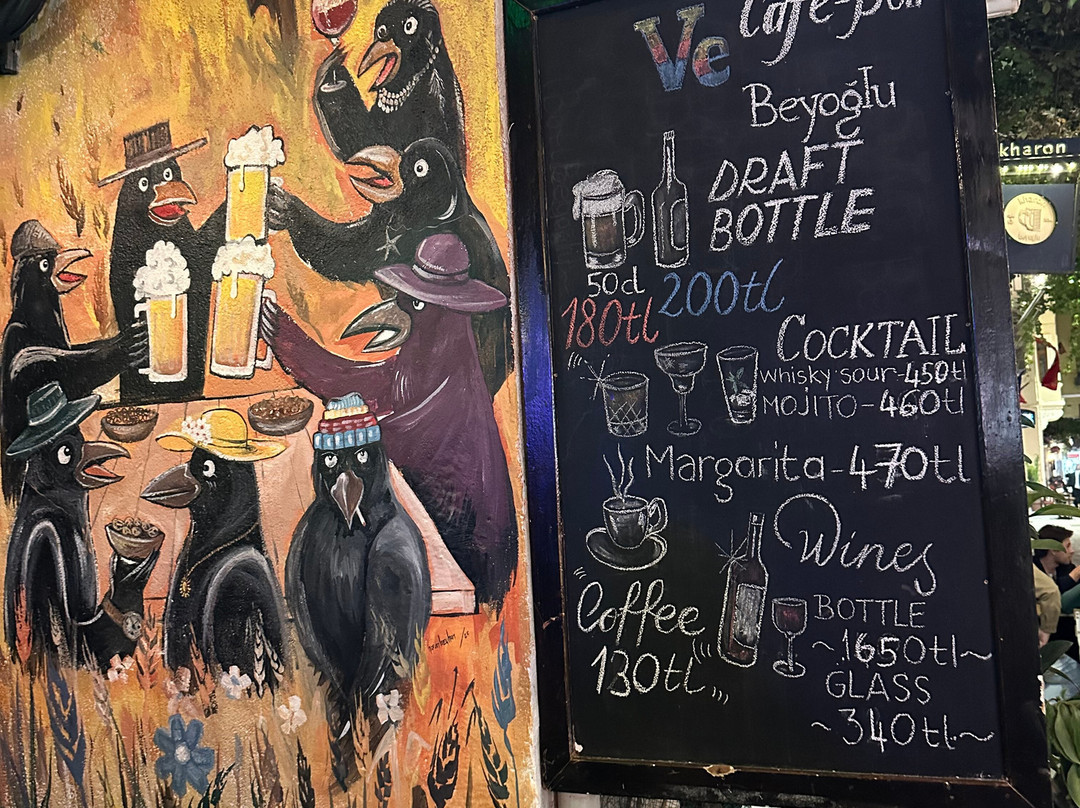 Ve Cafe-Bar
Beyoğlu
DRAFT
BOTTLE
50cl
180tl 200tl
COCKTAIL
Whisky sour-450tl
MOJITO-460tl
Margarita-470tl
Wines
Coffee
130tl
BOTTLE
~1650tl~
GLASS
~340tl~
kharon